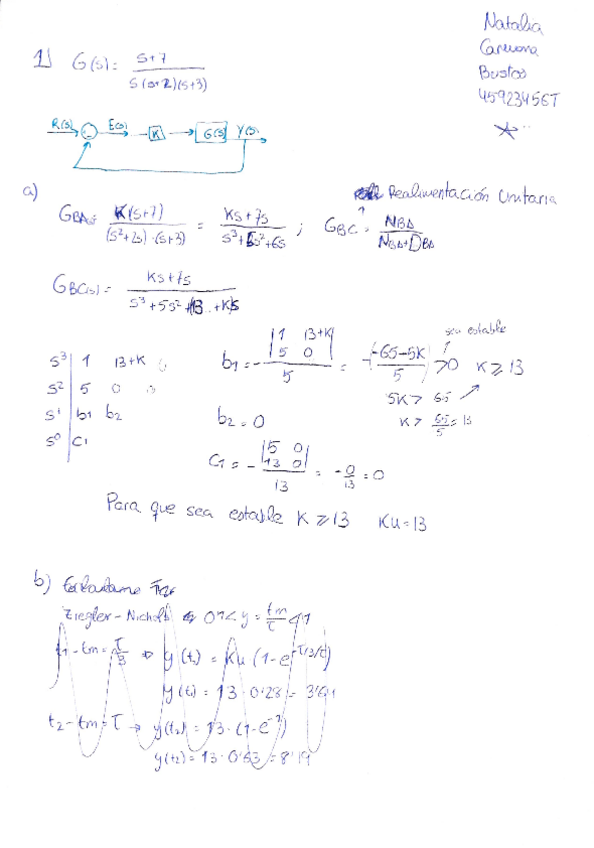 Natalia
Carmona
Bustos
45923456T
1) G(s) = s+7 / s(s+2)(s+3)
R(s) E(s) K G(s) Y(s)
a)
Realimentación Unitaria
GBA(s) = K(s+7) / (s²+2s)·(s+3) = Ks+7s / s³+5s²+6s ; GBC = NBA / NBA+DBA
GBC(s) = Ks+7s / s³+5s²+(13+K)s
sea estable
s³ | 1 13+K 0
s² | 5 0
s¹ | b1 b2
s⁰ | C1
b1 = - |1 13+K| |5 0| / 5 = -(-65-5K / 5) > 0 K ≥ 13
5K > 65
K > 65/5 = 13
b2 = 0
C1 = - |5 0| |13 0| / 13 = -0/13 = 0
Para que sea estable K ≥ 13 Ku = 13
b)
Ziegler-Nichols 0'1 < y = tm/τ < 1
t1-tm = τ/3 ⇒ y(t1) = Ku (1-e^(-τ/3/τ))
y(t1) = 13·0'28 = 3'64
t2-tm = τ → y(t2) = 13·(1-e⁻¹)
y(t2) = 13·0'63 = 8'19